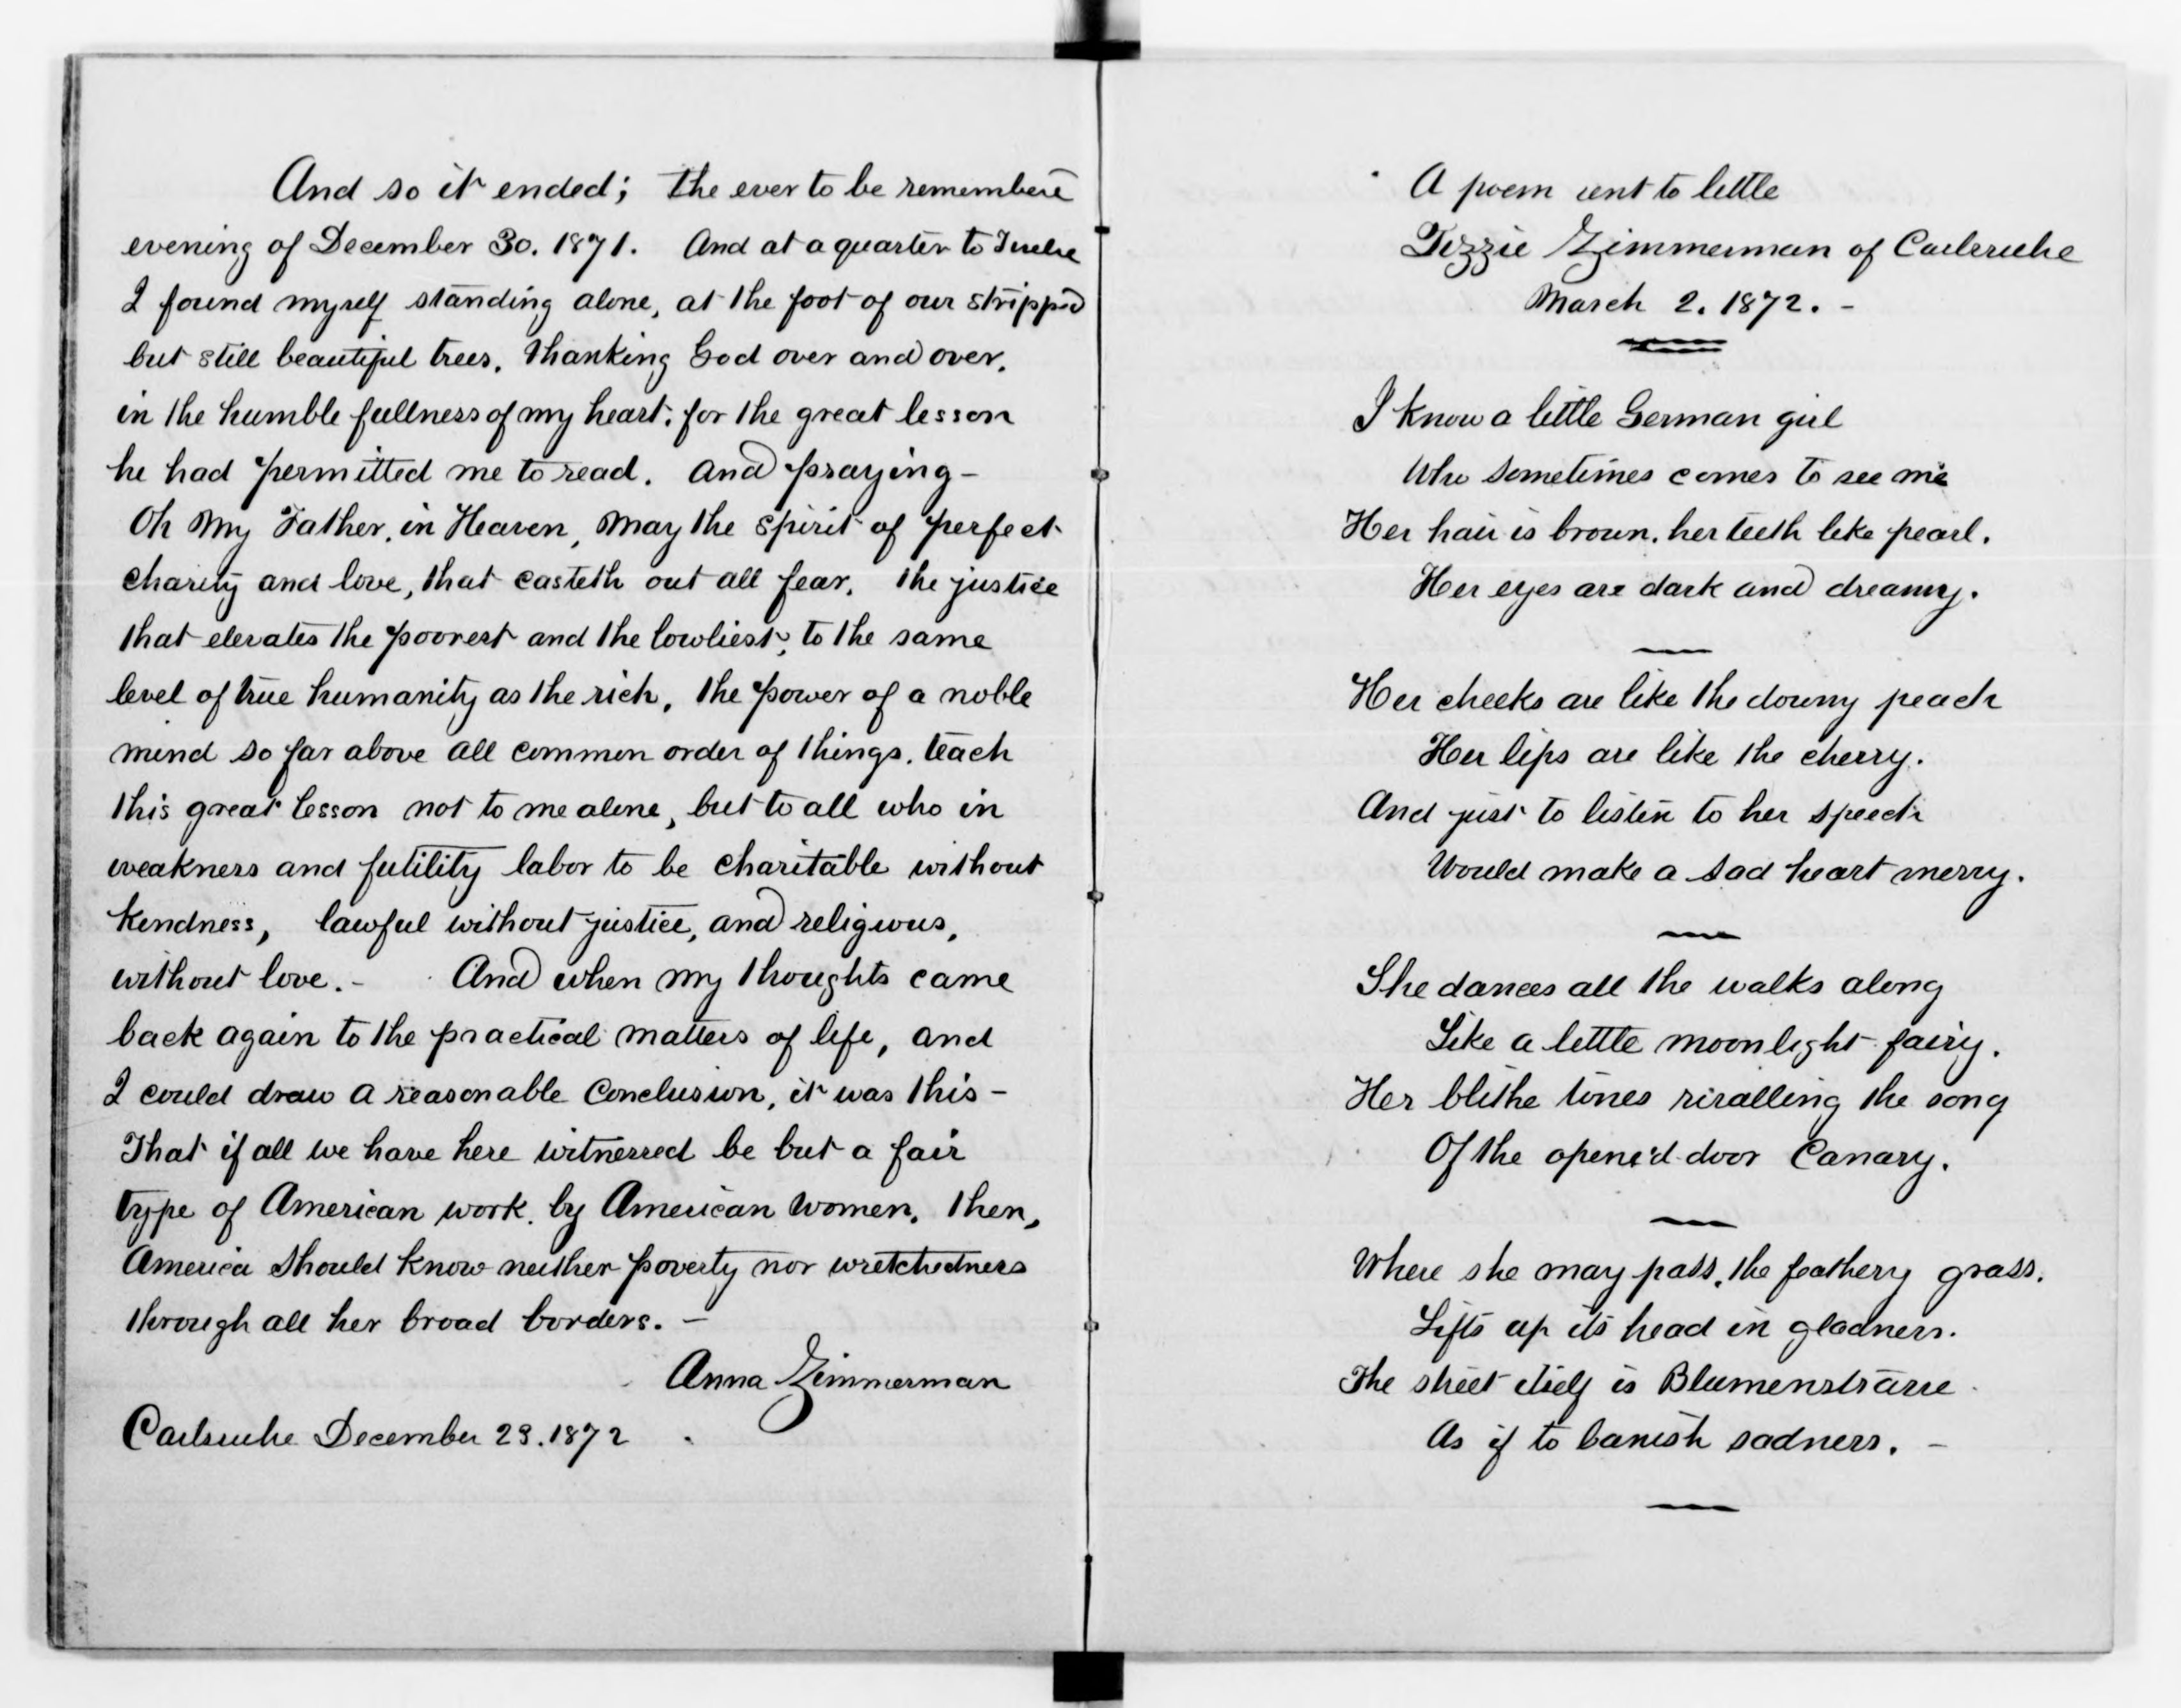 And so it ended; the ever to be remembere
evening of December 30. 1871. And at a quarter to Twelve
I found myself standing alone, at the foot of our stripped
but still beautiful trees. thanking God over and over.
in the humble fullness of my heart. for the great lesson
he had permitted me to read. And praying -
Oh My Father, in Heaven, May the Spirit of perfect
charity and love, that casteth out all fear. the justice
that elevates the poorest and the lowliest, to the same
level of true humanity as the rich, the power of a noble
mind so far above all common order of things. teach
this great lesson not to me alone, but to all who in
weakness and futility labor to be charitable without
kindness, lawful without justice, and religious,
without love. - And when my thoughts came
back again to the practical matters of life, and
I could draw a reasonable conclusion, it was this -
That if all we have here witnessed be but a fair
type of American work. by American Women. then,
America should know neither poverty nor wretchedness
through all her broad borders. -
Anna Zimmerman
Carlsruhe December 23. 1872
A poem sent to little
Tizzie Zimmerman of Carlsruhe
March 2. 1872. -
I know a little German girl
Who sometimes comes to see me
Her hair is brown. her teeth like pearl.
Her eyes are dark and dreamy.
Her cheeks are like the downy peach
Her lips are like the cherry.
And just to listen to her speech
Would make a sad heart merry.
She dances all the walks along
Like a little moonlight fairy.
Her blithe tones rivalling the song
Of the open'd door Canary.
Where she may pass, the feathery grass.
Lifts up its head in gladness.
The street itself is Blumenstrasse
As if to banish sadness. -